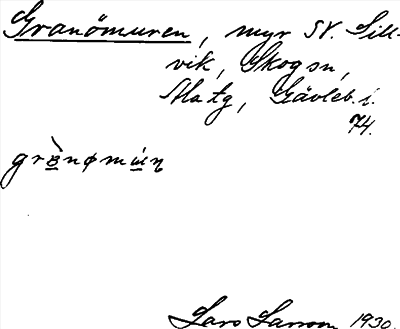 Granömuren, myr SV. Sill-
vik, Skogsn,
Matg, Gävleb. i.
74.
Lars Larsson 1930.